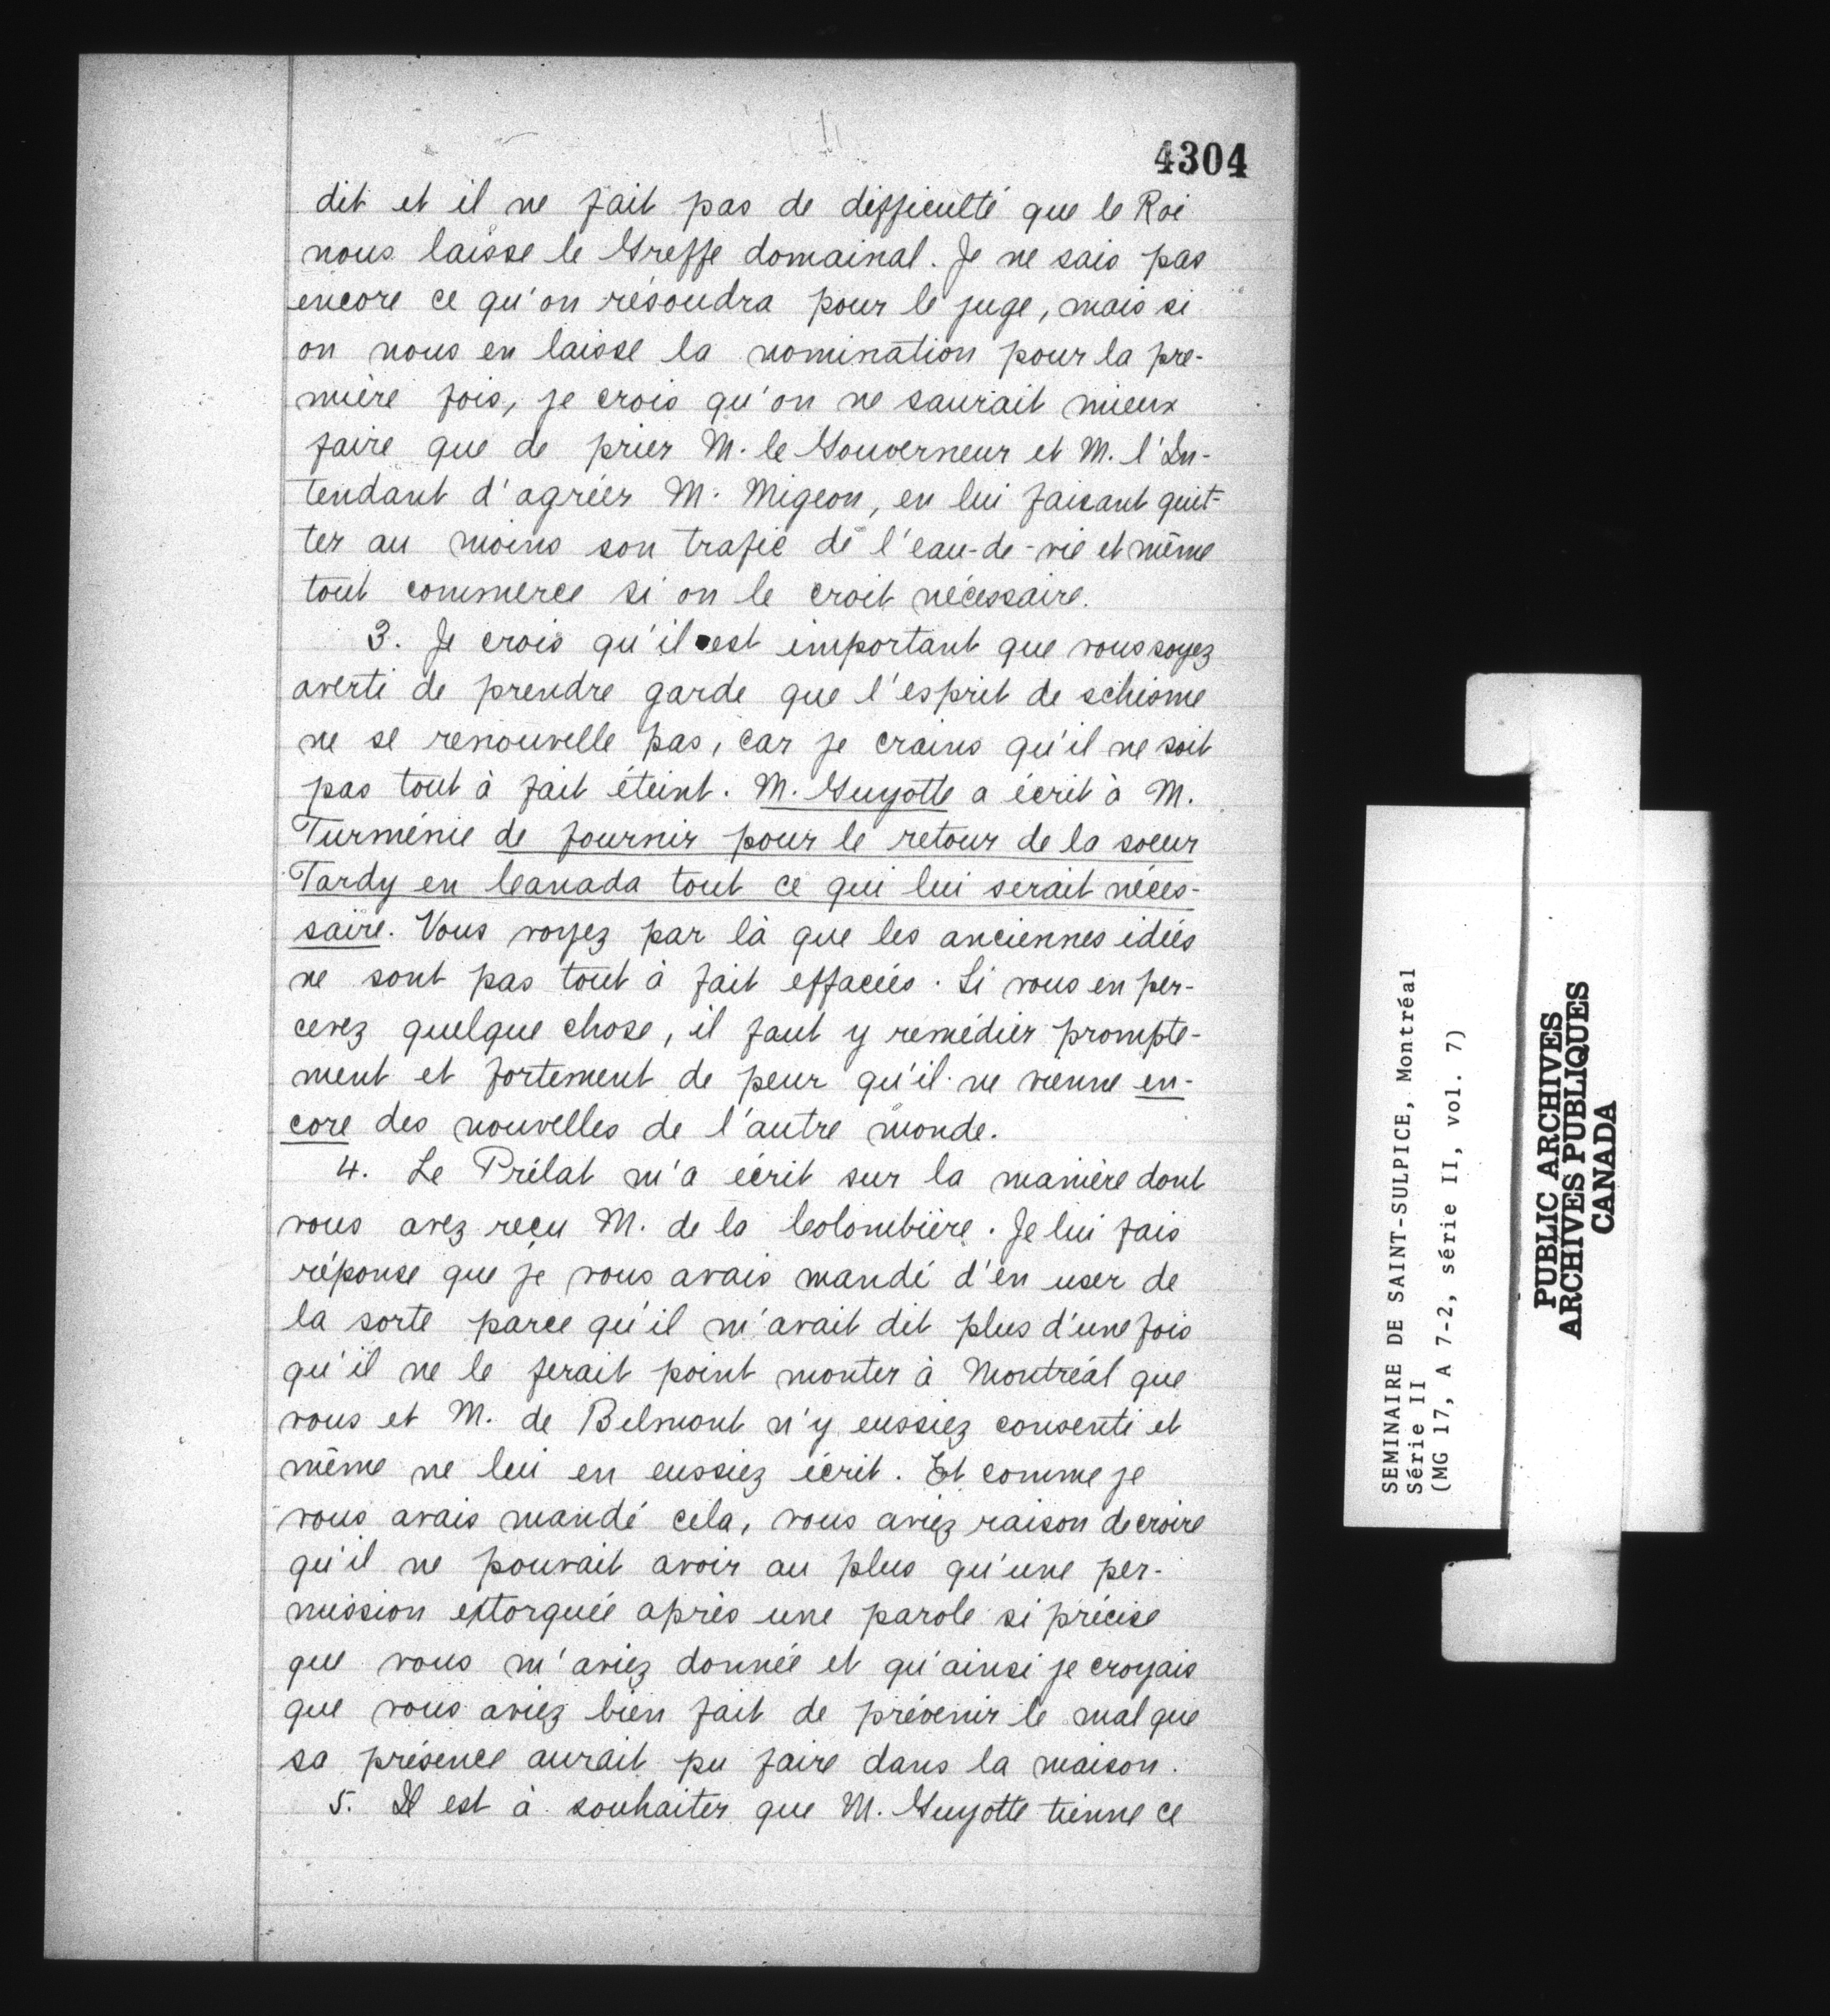 4304
dit et il ne fait pas de difficulté que le Roi
nous laisse le Greffe domainal. Je ne sais pas
encore ce qu'on résoudra pour le juge, mais si
on nous en laisse la nomination pour la pre-
mière fois, je crois qu'on ne saurait mieux
faire que de prier M. le Gouverneur et M. l'In-
tendant d'agréer M. Migeon, en lui faisant quit-
ter au moins son trafic de l'eau-de-vie et même
tout commerce si on le croit nécessaire.
3. Je crois qu'il est important que vous soyez
averti de prendre garde que l'esprit de schisme
ne se renouvelle pas, car je crains qu'il ne soit
pas tout à fait éteint. M. Guyotte a écrit à M.
Turménie de fournir pour le retour de la soeur
Tardy en Canada tout ce qui lui serait néces-
saire. Vous voyez par là que les anciennes idées
ne sont pas tout à fait effacées. Si vous en per-
cevez quelque chose, il faut y remédier prompte-
ment et fortement de peur qu'il ne vienne en-
core des nouvelles de l'autre monde.
4. Le Prélat m'a écrit sur la manière dont
vous avez reçu M. de la Colombière. Je lui fais
réponse que je vous avais mandé d'en user de
la sorte parce qu'il m'avait dit plus d'une fois
qu'il ne le ferait point monter à Montréal que
vous et M. de Belmont n'y eussiez consenti et
même ne lui en eussiez écrit. Et comme je
vous avais mandé cela, vous aviez raison de croire
qu'il ne pouvait avoir au plus qu'une per-
mission extorquée après une parole si précise
que vous m'aviez donnée et qu'ainsi je croyais
que vous aviez bien fait de prévenir le mal que
sa présence aurait pu faire dans la maison.
5. Il est à souhaiter que M. Guyotte tienne ce
SEMINAIRE DE SAINT-SULPICE, Montréal
Série II
(MG 17, A 7-2, série II, vol. 7)
PUBLIC ARCHIVES
ARCHIVES PUBLIQUES
CANADA